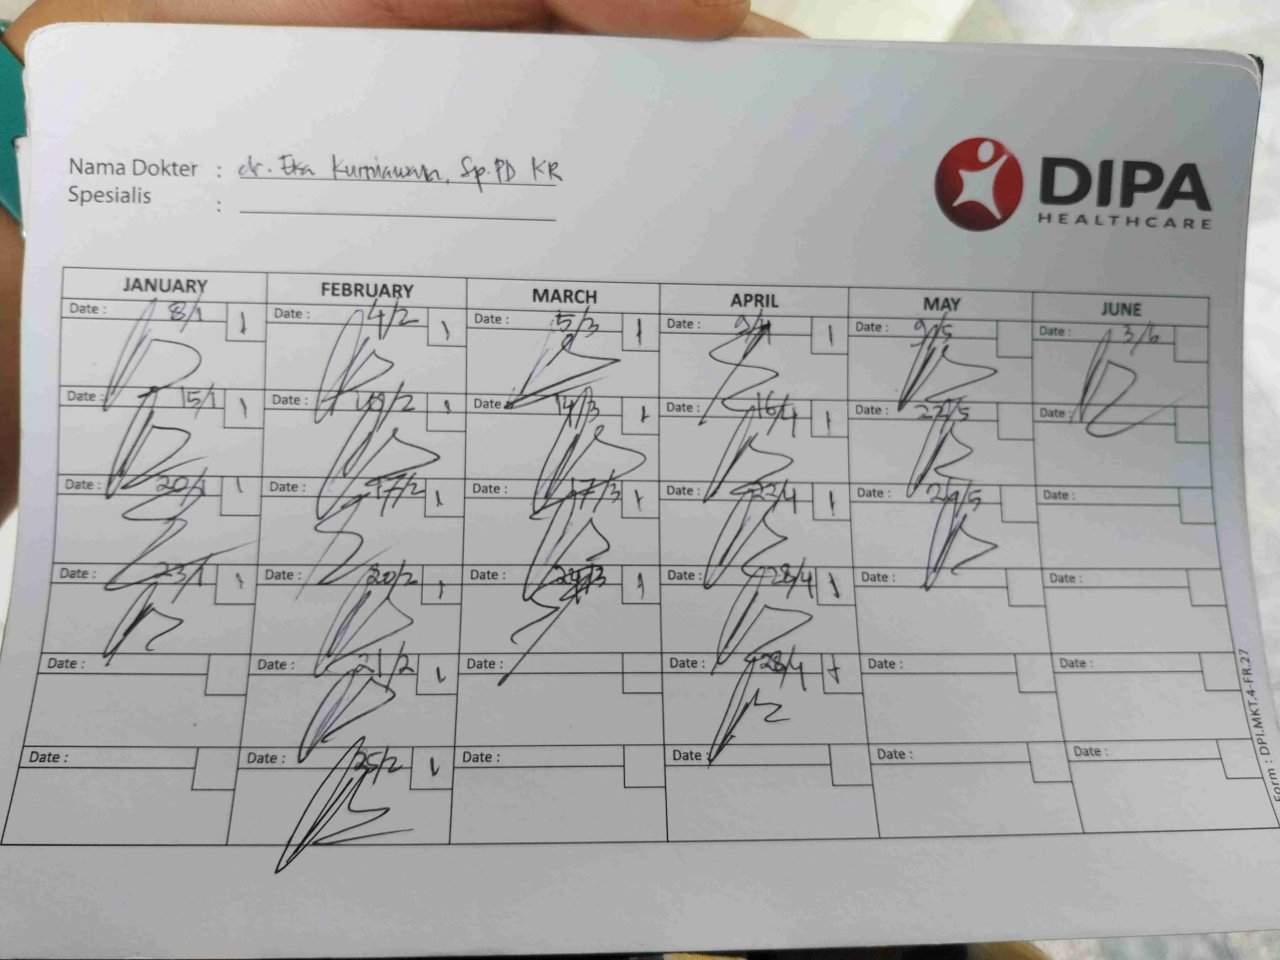 Nama Dokter : dr. Eka Kurniawan, Sp.PD KR
Spesialis :
DIPA
HEALTHCARE
JANUARY FEBRUARY MARCH APRIL MAY JUNE
Date : 8/1 1 Date : 4/2 1 Date : 5/3 1 Date : 9/4 1 Date : 9/5 Date : 3/6
Date : 15/1 1 Date : 10/2 1 Date : 14/3 1 Date : 16/4 1 Date : 22/5 Date :
Date : 20/1 1 Date : 17/2 1 Date : 17/3 1 Date : 22/4 1 Date : 29/5 Date :
Date : 23/1 1 Date : 20/2 1 Date : 1 Date : 28/4 1 Date : Date :
Date : Date : 21/2 1 Date : Date : 28/4 1 Date : Date :
Date : Date : 25/2 1 Date : Date : Date : Date :
Form : DPI.MKT.4-FR.27